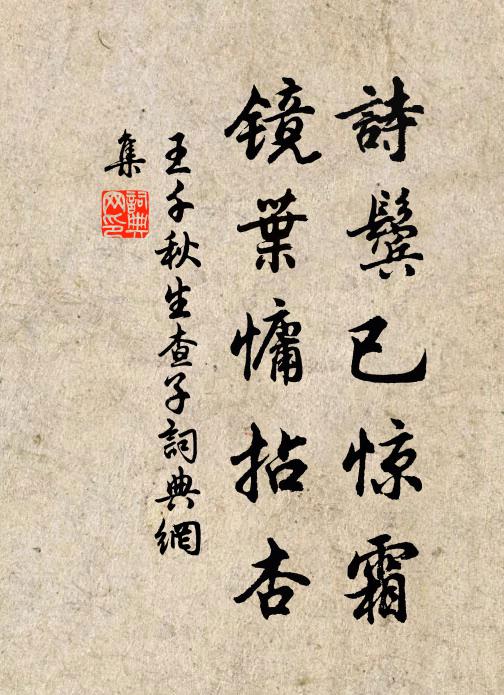 詩鬓已惊霜
镜葉慵拈杏
王千秋生查子詞典網
集
詞典网印